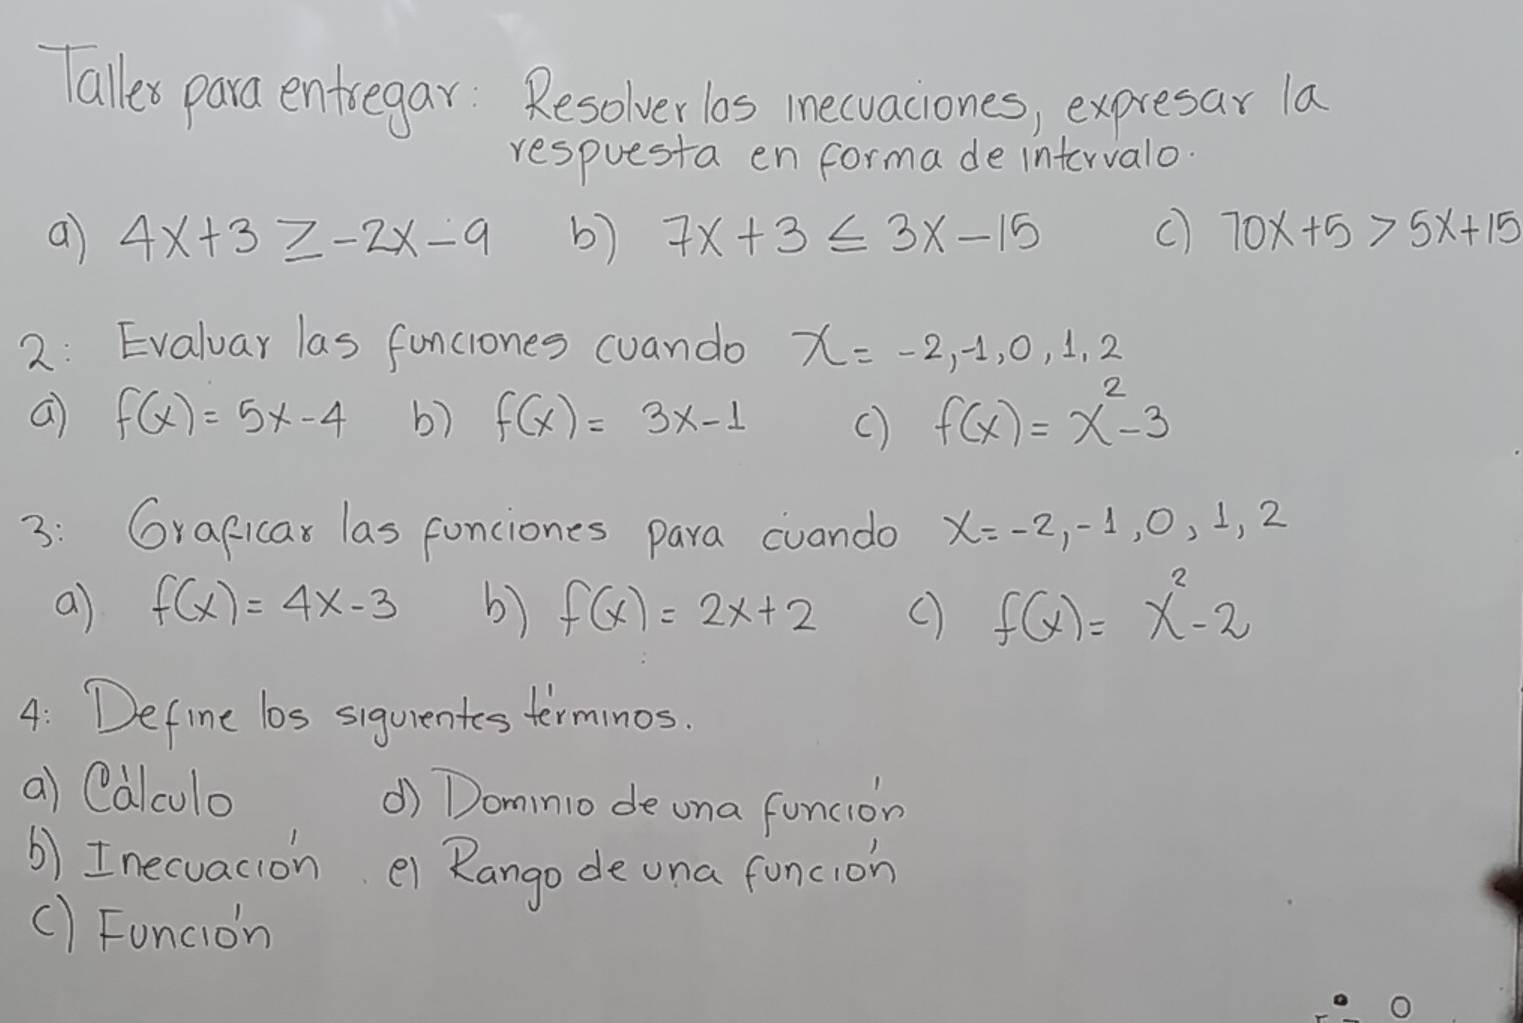 Taller para entregar: Resolver las inecuaciones, expresar la
respuesta en forma de intervalo.
a) 4x+3 ≥ -2x-9 b) 7x+3 ≤ 3x-15 c) 70x+5 > 5x+15
2: Evaluar las funciones cuando x= -2,-1,0,1,2
a) f(x)= 5x-4 b) f(x)= 3x-1 c) f(x)= x²-3
3: Graficar las funciones para cuando x=-2,-1,0,1,2
a) f(x)= 4x-3 b) f(x)= 2x+2 c) f(x)= x²-2
4: Define los siguientes términos.
a) Cálculo d) Dominio de una función
b) Inecuación e) Rango de una función
c) Función